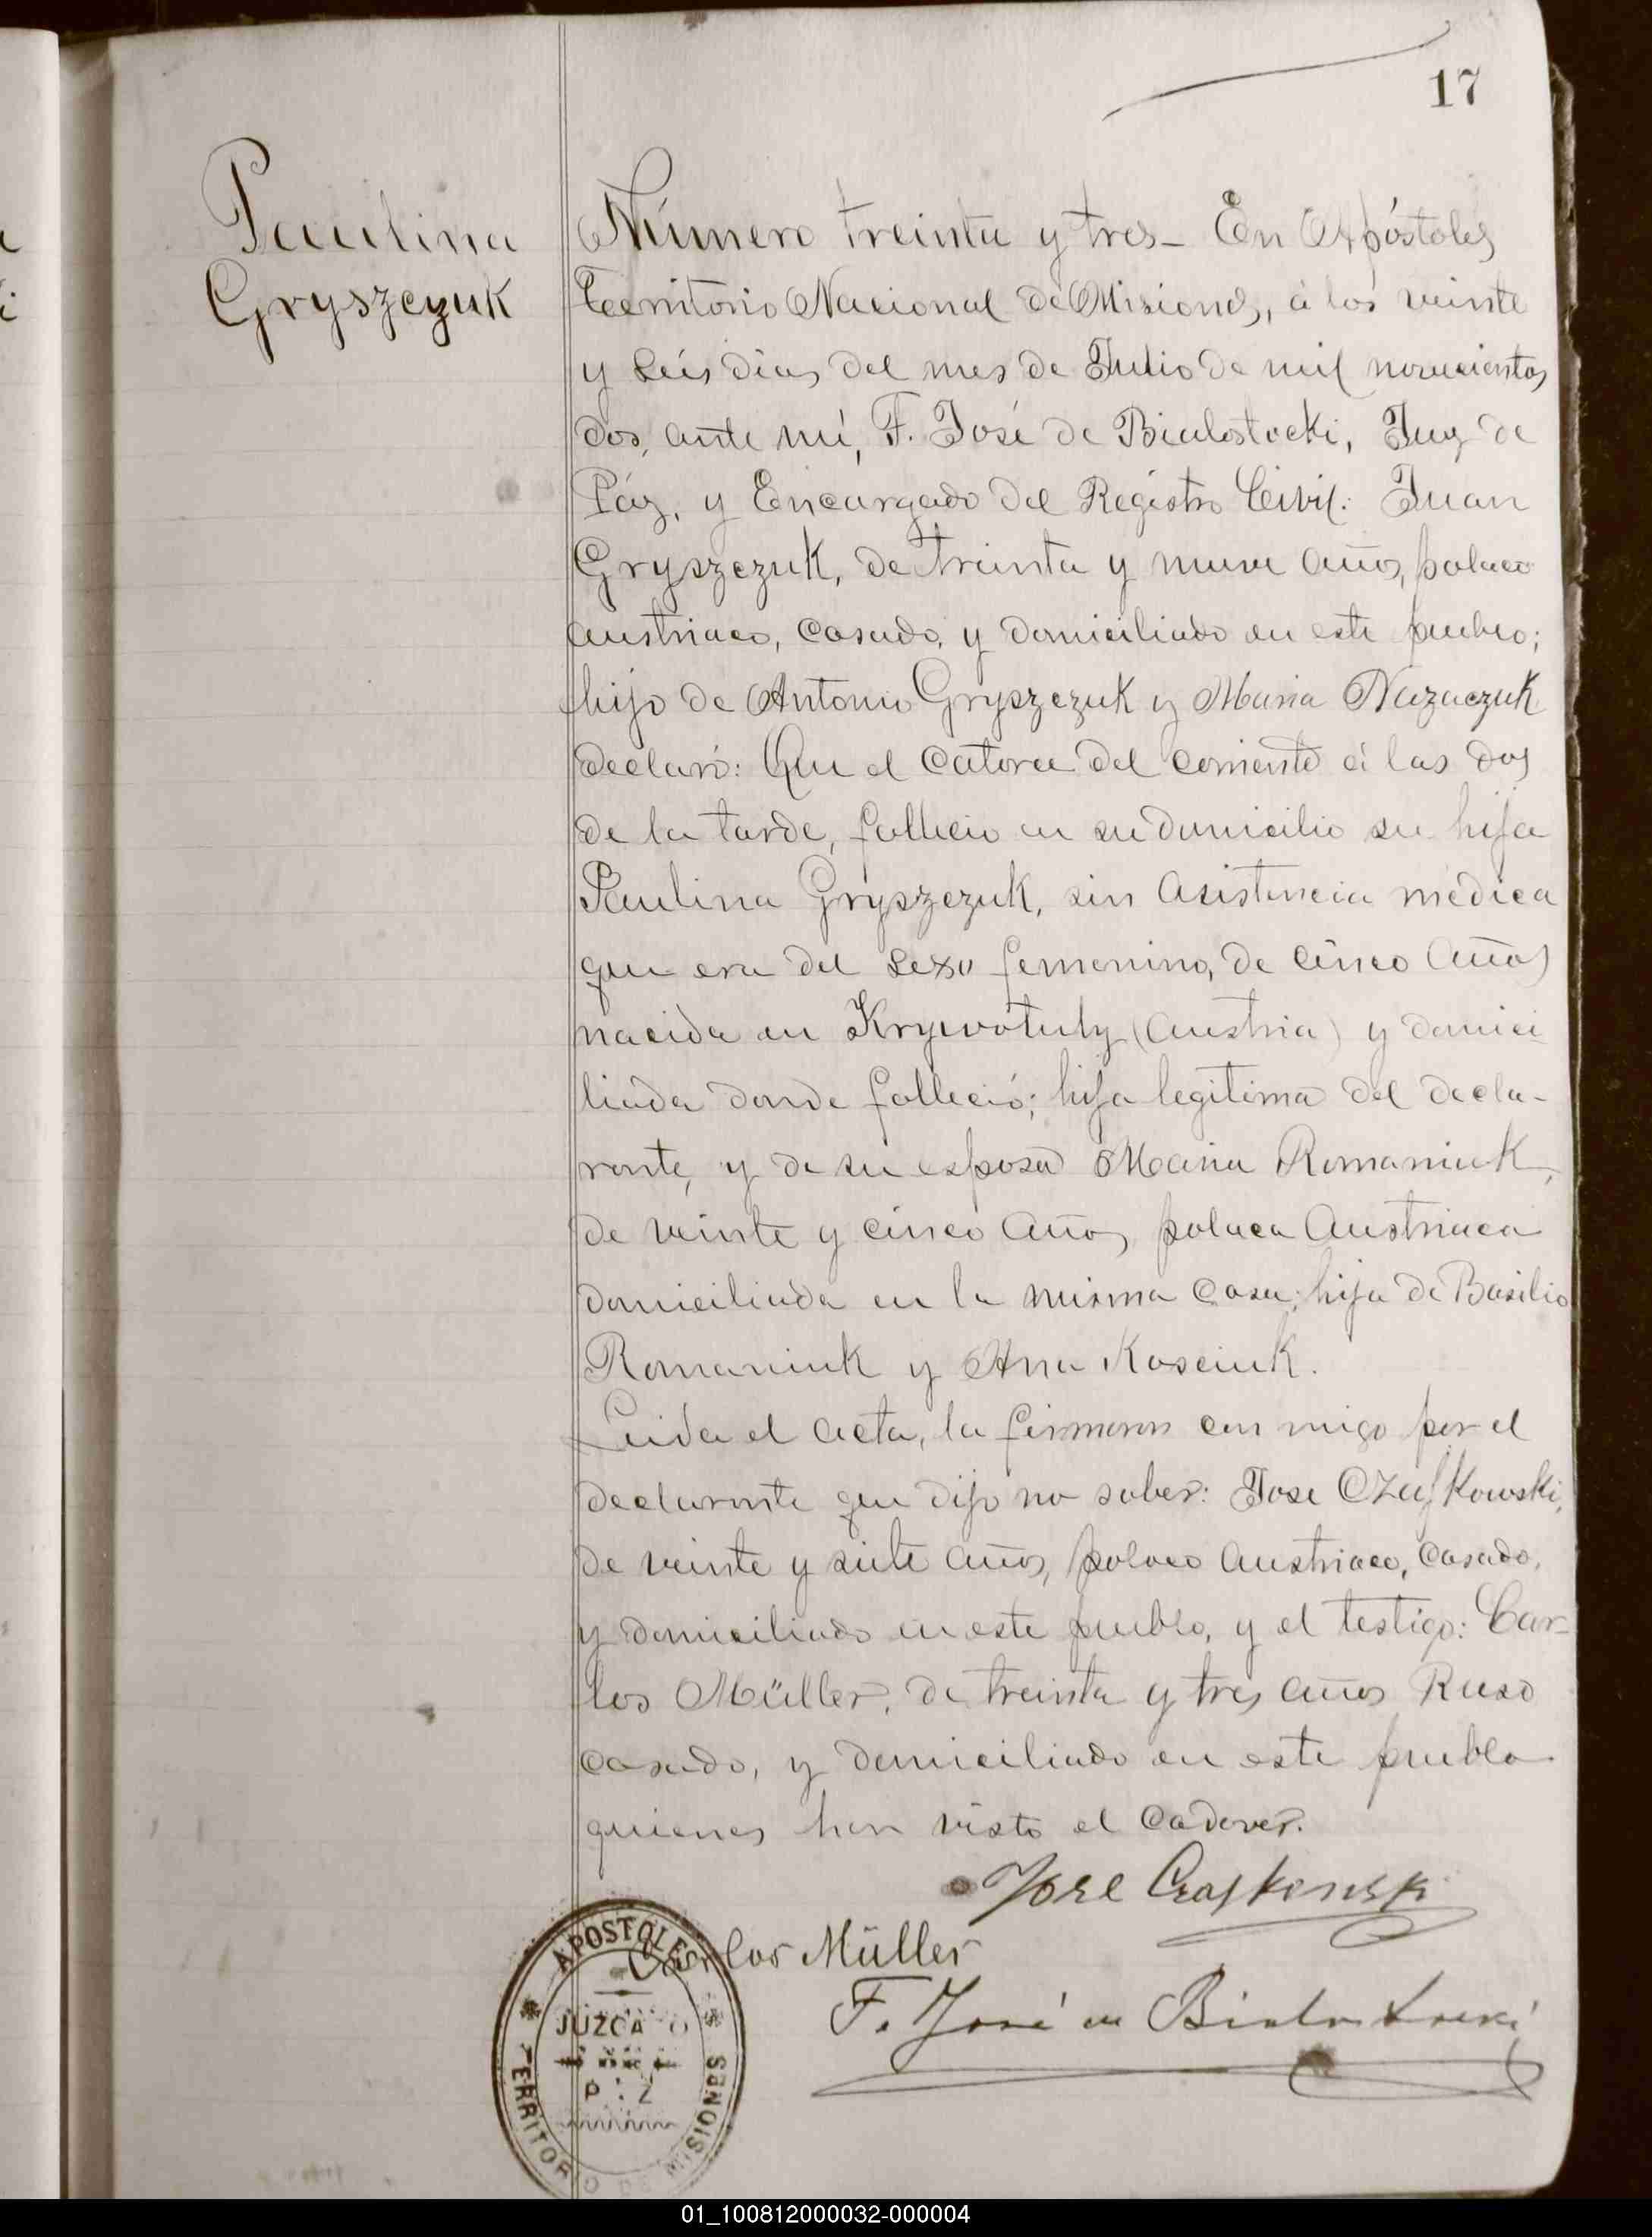 17
Paulina
Gryszczuk
Número treinta y tres - En Apóstoles
Territorio Nacional de Misiones, á los veinte
y seis dias del mes de Julio de mil novecientos
dos, ante mí, F. José de Bialostocki, Juez de
Páz, y Encargado del Registro Civil: Juan
Gryszczuk, de treinta y nueve años, polaco
austriaco, casado, y domiciliado en este pueblo;
hijo de Antonio Gryszczuk y Maria Nazaczuk
declaró: Que el catorce del corriente á las dos
de la tarde, falleció en su domicilio su hija
Paulina Gryszczuk, sin asistencia médica
que era del sexo femenino, de cinco años
nacida en Krywotuly (Austria) y domici
liada donde falleció; hija legitima del decla-
rante, y de su esposa Maria Romaniuk,
de veinte y cinco años, polaca Austriaca
domiciliada en la misma casa; hija de Basilio
Romaniuk y Ana Kosciuk.
Leida el acta, la firmaron con migo por el
declarante que dijo no saber: Jose Czajkowski,
de veinte y siete años, polaco austriaco, casado,
y domiciliado en este pueblo, y el testigo: Car-
los Müller, de treinta y tres años Ruso
casado, y domiciliado en este pueblo
quienes han visto el cadaver.
Jose Czajkowski
Carlos Müller
F. José de Bialostocki
APOSTOLES
JUZGADO
DE
PAZ
TERRITORIO DE MISIONES
01_100812000032-000004